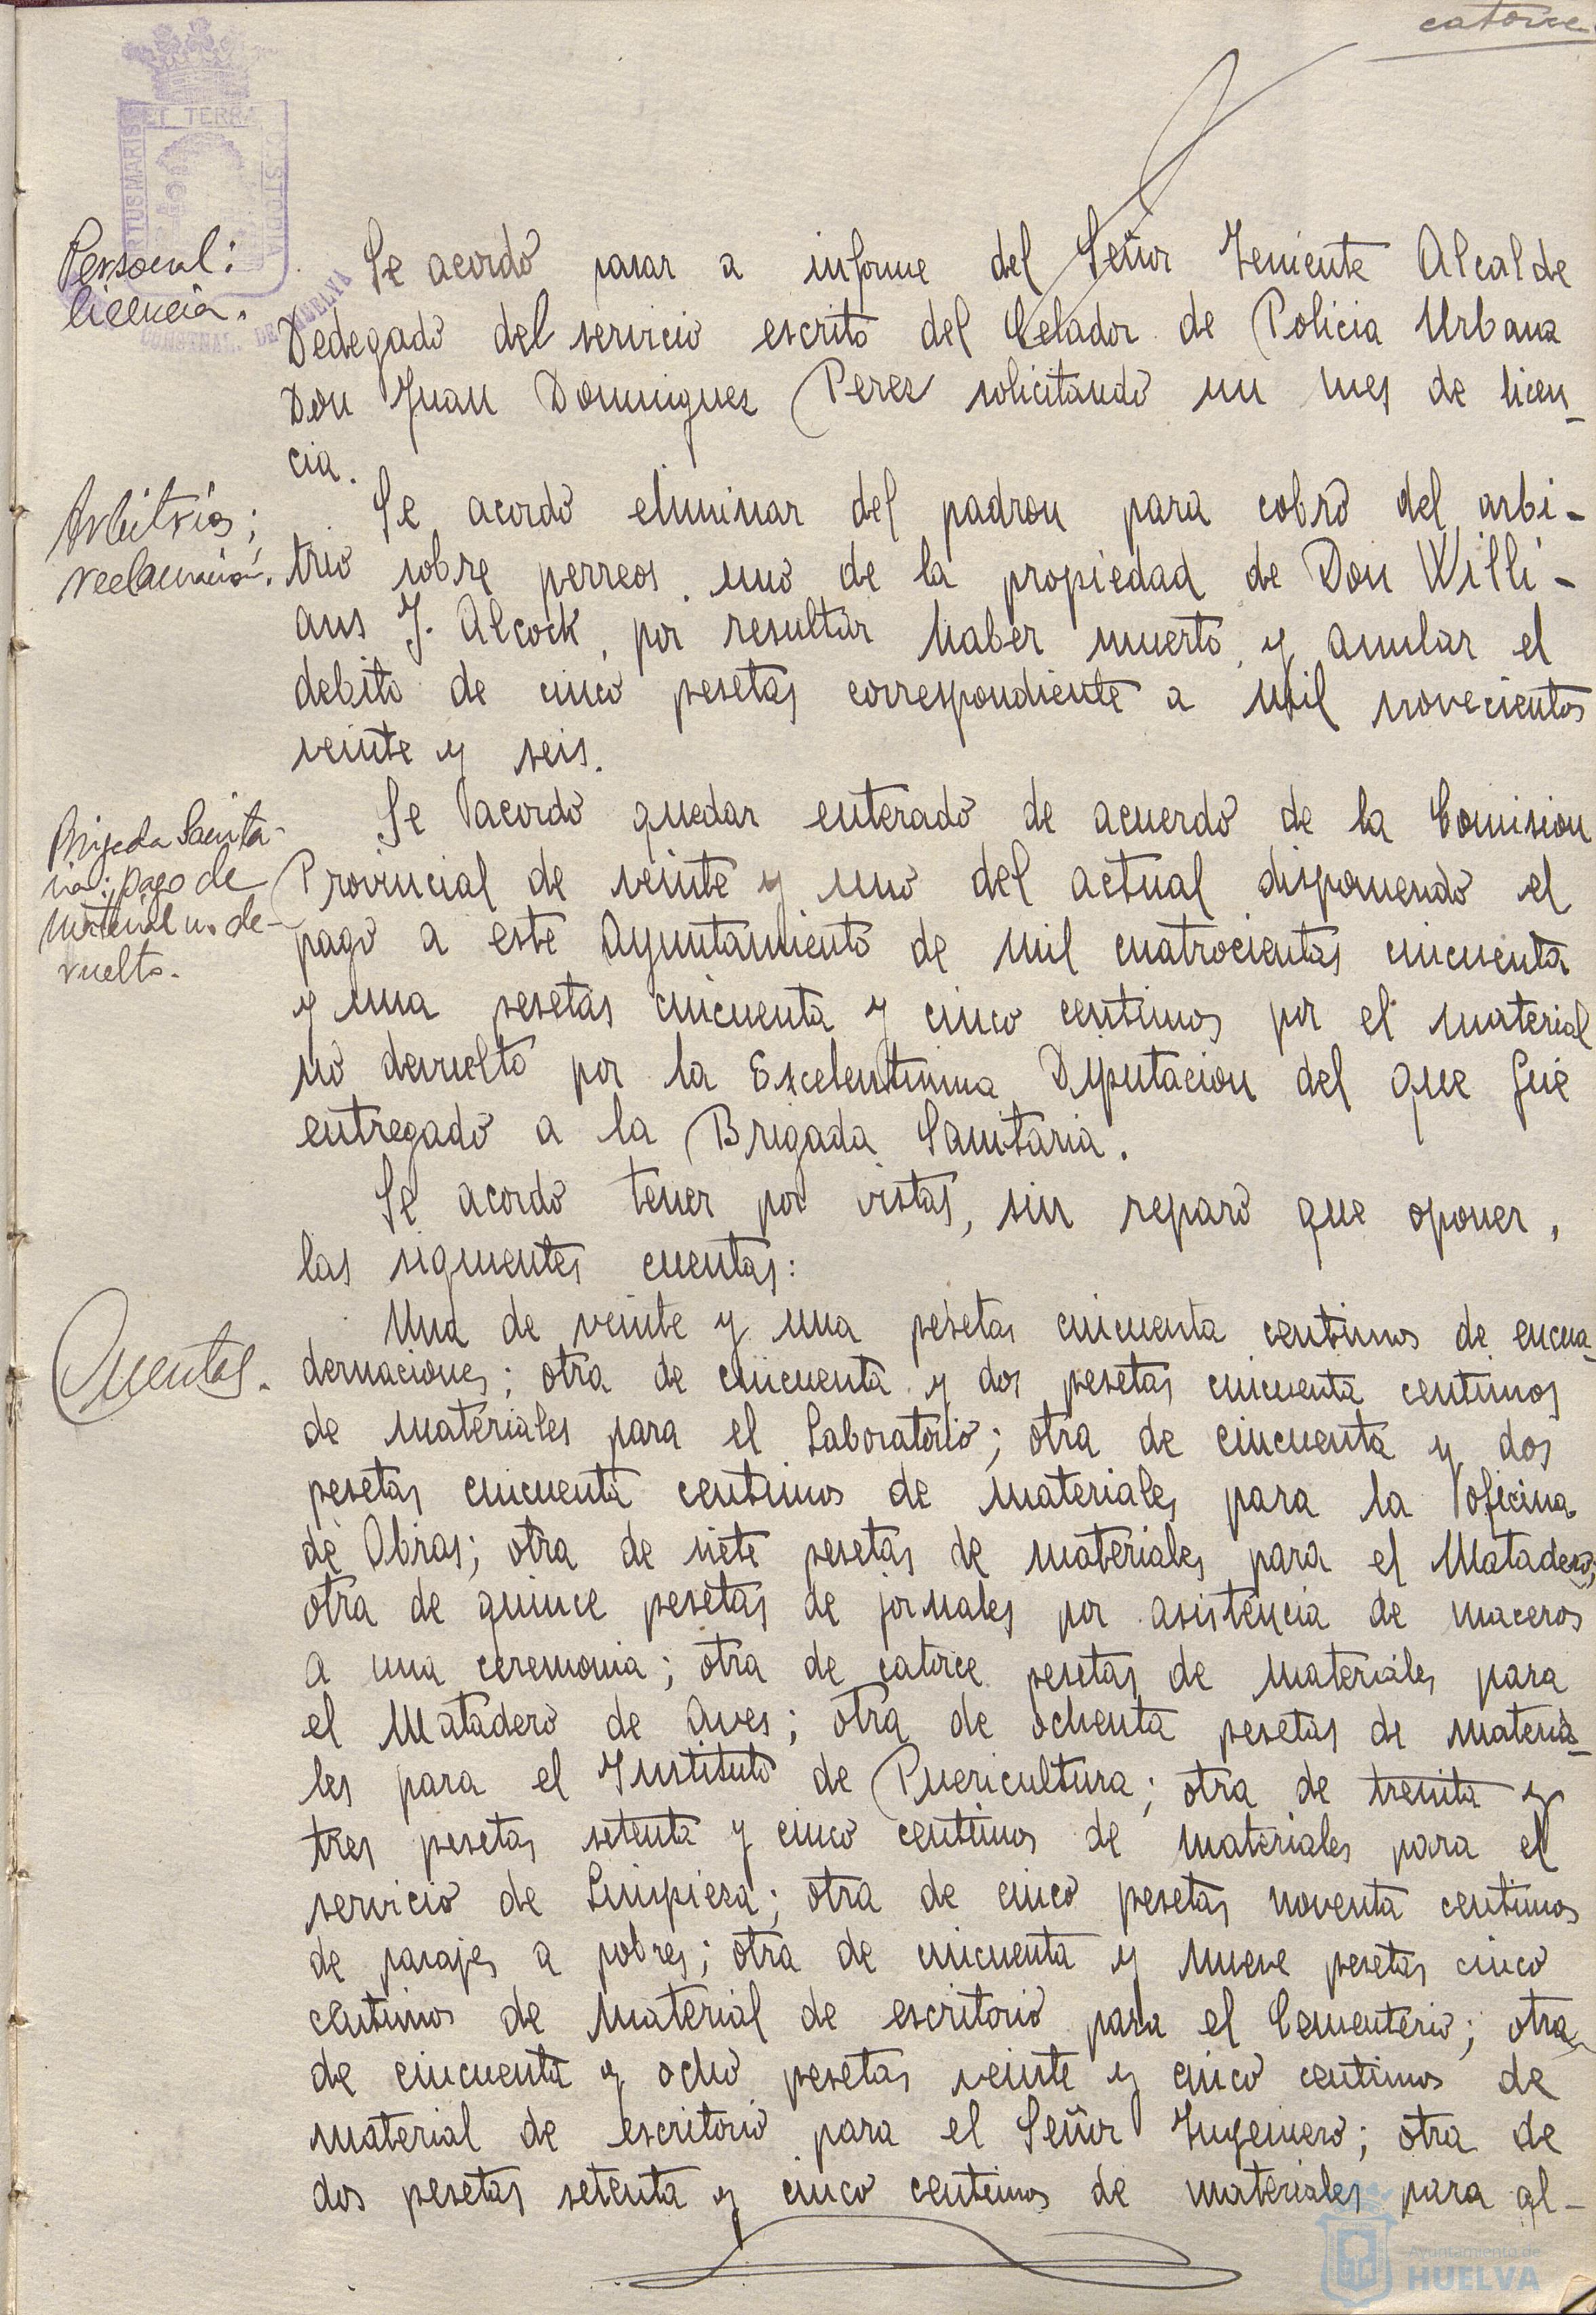 catorce
PORTUS MARIS ET TERRAE CUSTODIA
CONSTNAL. DE HUELVA
Personal:
licencia.
Se acordó pasar a informe del Señor Teniente Alcalde
Dedegado del servicio escrito del Celador de Policia Urbana
Don Juan Dominguez Perez solicitando un mes de licen-
cia.
Arbitrios;
reclamación.
Se acordó eliminar del padron para cobro del arbi-
trio sobre perreos uno de la propiedad de Don Willi-
ans J. Alcock, por resultar haber muerto, y anular el
debito de cinco pesetas correspondiente a mil novecientos
veinte y seis.
Brigada Sanita-
ria: pago de
material no de-
vuelto.
Se acordó quedar enterado de acuerdo de la Comision
Provincial de veinte y uno del actual disponiendo el
pago a este Ayuntamiento de mil cuatrocientas cincuenta
y una pesetas cincuenta y cinco centimos por el material
no devuelto por la Excelentisima Diputacion del que fué
entregado a la Brigada Sanitaria.
Se acordó tener por vistas, sin reparo que oponer,
las siguientes cuentas:
Cuentas.
Una de veinte y una pesetas cincuenta centimos de encua-
dernaciones; otra de cincuenta y dos pesetas cincuenta centimos
de materiales para el Laboratorio; otra de cincuenta y dos
pesetas cincuenta centimos de materiales para la oficina
de Obras; otra de siete pesetas de materiales para el Matadero;
otra de quince pesetas de jornales por asistencia de maceros
a una ceremonia; otra de catorce pesetas de materiales para
el Matadero de Aves; otra de ochenta pesetas de materia-
les para el Instituto de Puericultura; otra de treinta y
tres pesetas setenta y cinco centimos de materiales para el
servicio de Limpieza; otra de cinco pesetas noventa centimos
de pasajes a pobres; otra de cincuenta y nueve pesetas cinco
centimos de material de escritorio para el Cementerio; otra
de cincuenta y ocho pesetas veinte y cinco centimos de
material de escritorio para el Señor Ingeniero; otra de
dos pesetas setenta y cinco centimos de materiales para al-
Ayuntamiento de
HUELVA